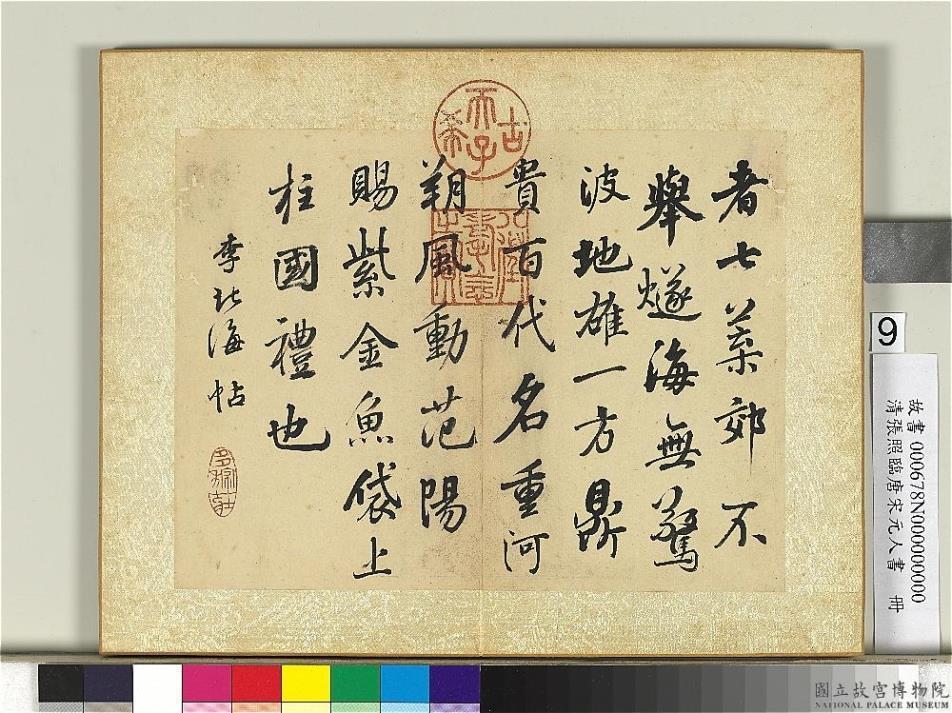 者七菜郊不
舉燧海無驚
波地雄一方鼎
貴百代名重河
朔風動范陽
賜紫金魚袋上
柱國禮也
李北海帖
古希天子
9
故書 000678N000000000
清張照臨唐宋元人書 冊
國立故宮博物院
NATIONAL PALACE MUSEUM